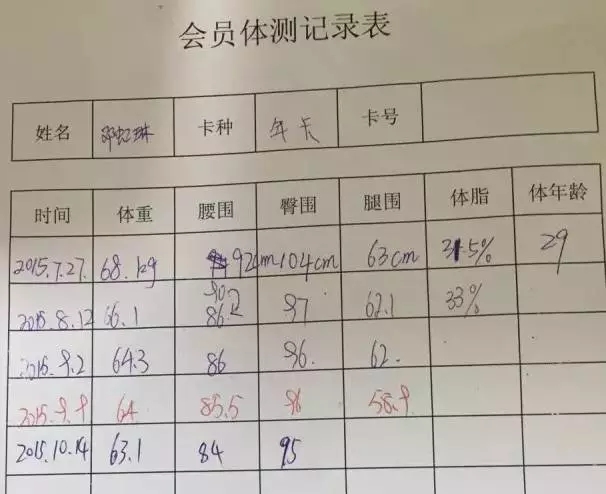 会员体测记录表
姓名 邓虹琳 卡种 年卡 卡号
时间 体重 腰围 臀围 腿围 体脂 体年龄
2015.7.27. 68.kg 92cm 104cm 63cm 31.5% 29
2015.8.12 66.1 86.2 97 62.1 33%
2015.9.2 64.3 86 96. 62.
2015.9.9 64 85.5 96 58.9
2015.10.14 63.1 84 95